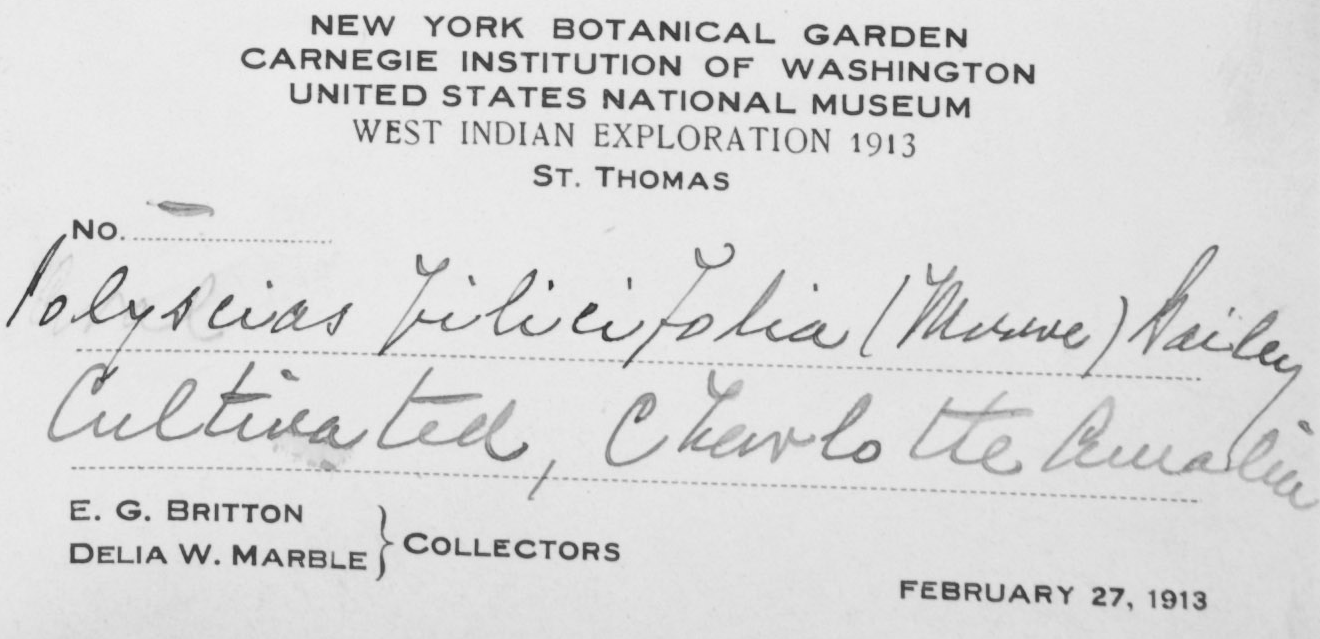 NEW YORK BOTANICAL GARDEN
CARNEGIE INSTITUTION OF WASHINGTON
UNITED STATES NATIONAL MUSEUM
WEST INDIAN EXPLORATION 1913
ST. THOMAS
No. —
Polyscias filicifolia (Moore) Bailey
Cultivated, Charlotte Amalia
E. G. BRITTON
DELIA W. MARBLE } COLLECTORS
FEBRUARY 27, 1913